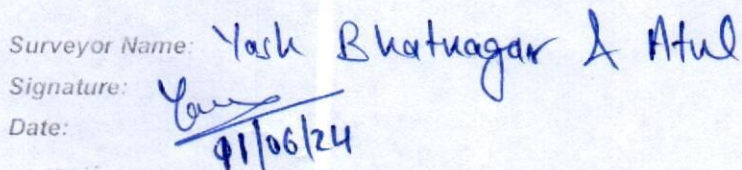 Surveyor Name: Yash Bhatnagar & Atul
Signature:
Date: 01/06/24